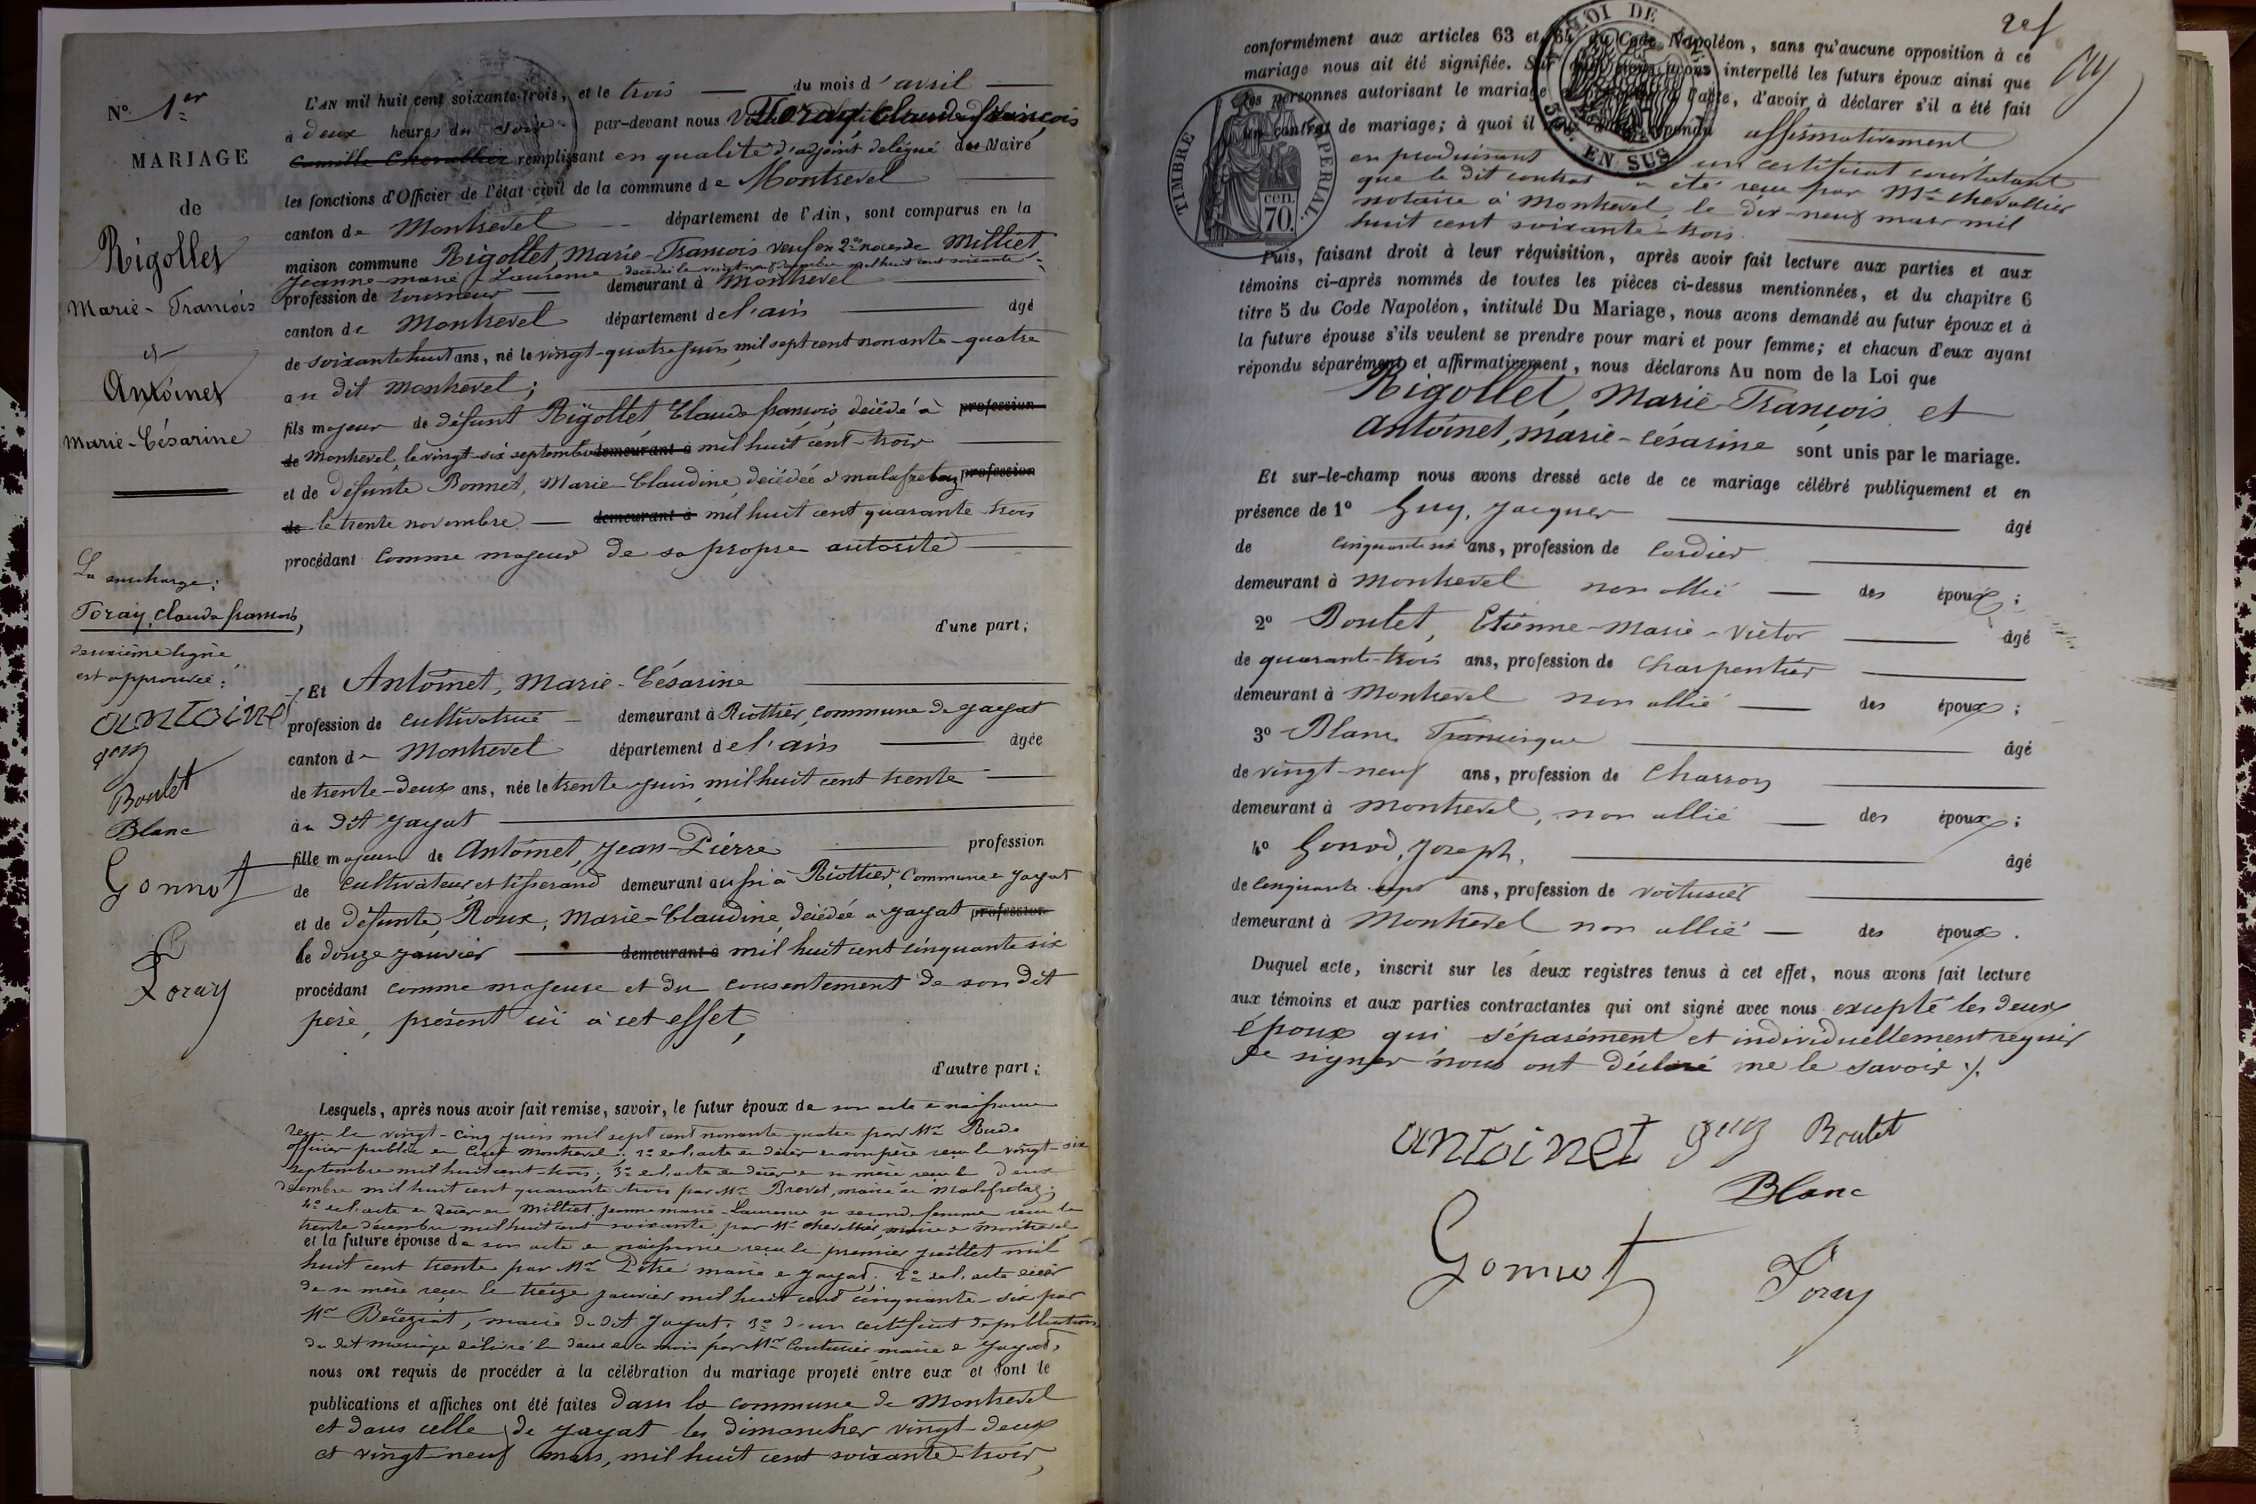 N° 1er
MARIAGE
de
Rigollet
Marie-François
et
Antoinet
Marie-Césarine
La surcharge:
Foray, Claude françois,
deuxième ligne
est approuvée:
antoinet
guy
Boulet
Blanc
Gonnot
Foray
L'AN mil huit cent soixante-trois, et le trois du mois d'avril
à deux heures du soir par-devant nous Foray, Claude françois
Camille Chevallier remplissant en qualité d'adjoint délégué des Maire
les fonctions d'Officier de l'état civil de la commune de Montrevel
canton de Montrevel département de l'Ain, sont comparus en la
maison commune Rigollet, Marie-François veuf en 2es noces de Milliet
Jeanne-marie-Laurence décédée le vingt-neuf décembre mil huit cent soixante
profession de tourneur demeurant à Montrevel
canton de Montrevel département de l'ain âgé
de soixante huit ans, né le vingt-quatre juin mil sept cent nonante-quatre
au dit Montrevel;
fils majeur de défunt Rigollet Claude françois, décédé à profession
de Montrevel, le vingt-six septembre demeurant à mil huit cent-trois
et de défunte Bonnet, Marie-Claudine, décédée à malafretaz profession
de le trente novembre demeurant à mil huit cent quarante-trois
procédant comme majeur de sa propre autorité
d'une part;
Et Antoinet, Marie-Césarine
profession de cultivatrice demeurant à Riottier, commune de Jayat
canton de Montrevel département de l'ain âgée
de trente-deux ans, née le trente juin mil huit cent trente
au dit Jayat
fille majeure de Antoinet, Jean-Pierre profession
de cultivateur et tisserand demeurant aussi à Riottier, Commune de Jayat
et de défunte, Roux, Marie-Claudine, décédée à Jayat profession
le douze janvier demeurant à mil huit cent cinquante six
procédant comme majeure et du consentement de son dit
père, présent ici à cet effet,
d'autre part;
Lesquels, après nous avoir fait remise, savoir, le futur époux de son acte de naissance
reçu le vingt-cinq juin mil sept cent nonante quatre par Mr Rude
officier public en cuet Montrevel; 2° de l'acte de décès de son père reçu le vingt-six
septembre mil huit cent-trois; 3° de l'acte de décès de sa mère reçu le deux
décembre mil huit cent quarante trois par Mr Brevet, maire de Malafretaz;
4° de l'acte de décès de Milliet Jeanne marie-Laurence sa seconde femme reçu le
trente décembre mil huit cent soixante, par Mr Chevallier, maire de Montrevel
et la future épouse de son acte de naissance reçu le premier juillet mil
huit cent trente par Mr Pitre maire de Jayat; 2° de l'acte de décès
de sa mère reçu le treize janvier mil huit cent cinquante-six par
Mr Bereiziat, maire du dit Jayat; 3° d'un certificat de publication
du dit mariage délivré le deux de ce mois par Mr Couturier maire de Jayat,
nous ont requis de procéder à la célébration du mariage projeté entre eux et dont le
publications et affiches ont été faites dans la commune de Montrevel
et dans celle de Jayat les dimanches vingt-deux
et vingt-neuf mars, mil huit cent soixante-trois,
conformément aux articles 63 et 64 du Code Napoléon, sans qu'aucune opposition à ce
mariage nous ait été signifiée. Sur quoi nous avons interpellé les futurs époux ainsi que
les personnes autorisant le mariage à l'acte, d'avoir à déclarer s'il a été fait
un contrat de mariage; à quoi il nous a été répondu affirmativement
en produisant un certificat constatant
que le dit contrat a été reçu par Me Chevallier
notaire à Montrevel, le dix-neuf mars mil
huit cent soixante trois.
TIMBRE IMPÉRIAL
70 cen.
LOI DE
EN SUS
Puis, faisant droit à leur réquisition, après avoir fait lecture aux parties et aux
témoins ci-après nommés de toutes les pièces ci-dessus mentionnées, et du chapitre 6
titre 5 du Code Napoléon, intitulé Du Mariage, nous avons demandé au futur époux et à
la future épouse s'ils veulent se prendre pour mari et pour femme; et chacun d'eux ayant
répondu séparément et affirmativement, nous déclarons Au nom de la Loi que
Rigollet, Marie François et
Antoinet, marie-césarine sont unis par le mariage.
Et sur-le-champ nous avons dressé acte de ce mariage célébré publiquement et en
présence de 1° Guy, Jacques âgé
de cinquante six ans, profession de Cordier
demeurant à Montrevel non allié des époux;
2° Boulet, Etienne-Marie-Victor âgé
de quarante-trois ans, profession de Charpentier
demeurant à Montrevel non allié des époux;
3° Blanc Francisque âgé
de vingt-neuf ans, profession de Charron
demeurant à Montrevel, non allié des époux;
4° Gonod, Joseph, âgé
de cinquante sept ans, profession de voiturier
demeurant à Montrevel non allié des époux.
Duquel acte, inscrit sur les deux registres tenus à cet effet, nous avons fait lecture
aux témoins et aux parties contractantes qui ont signé avec nous excepté les deux
époux qui séparément et individuellement requis
de signer nous ont déclaré ne le savoir ./.
antoinet guy Boulet
Blanc
Gonnot
Foray